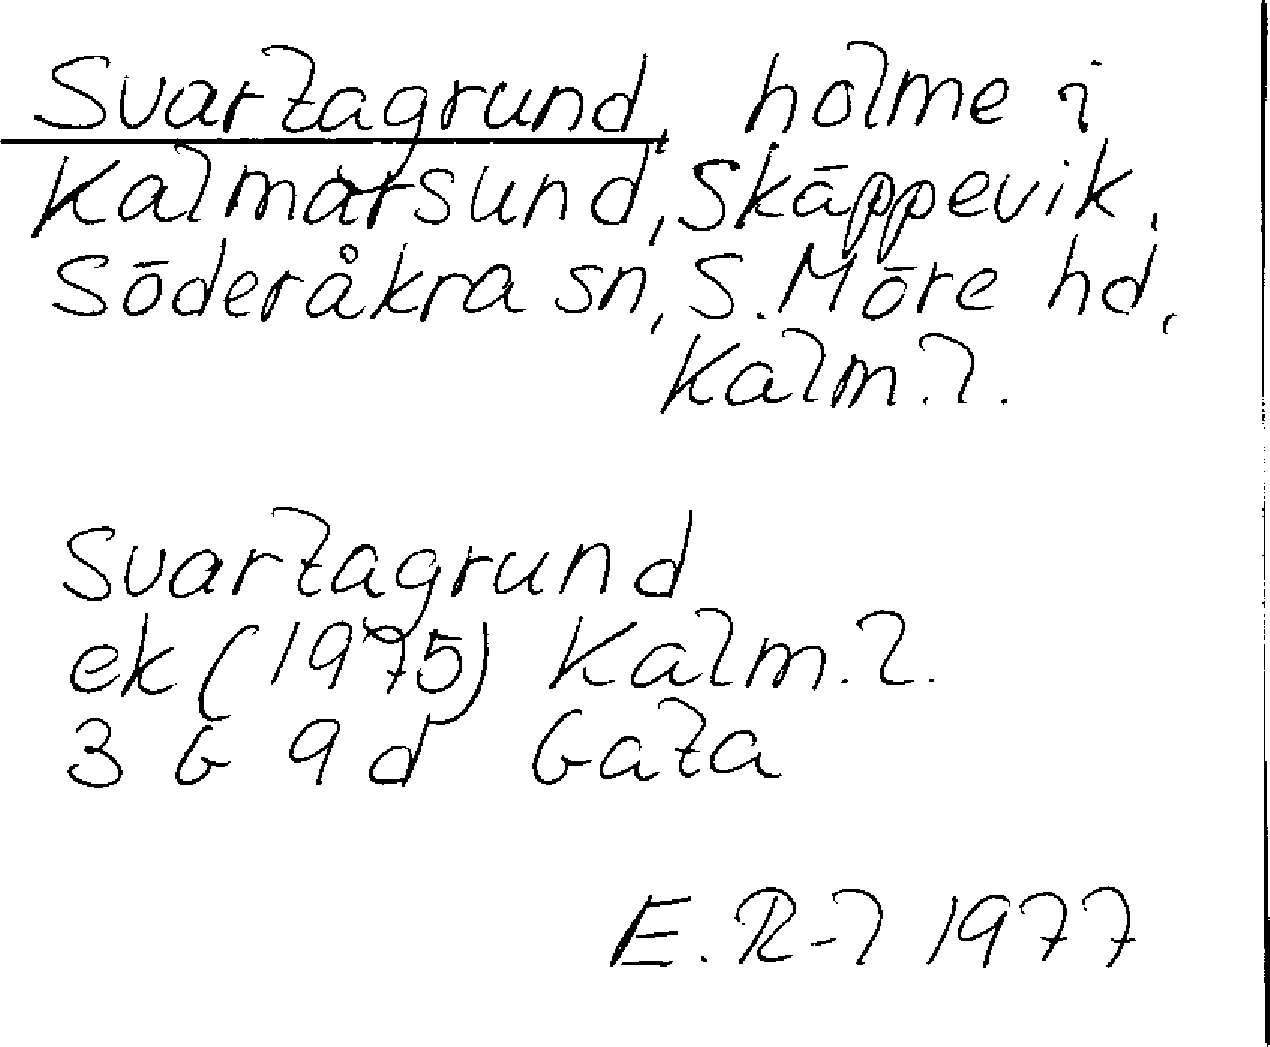 Svartagrund, holme i
Kalmarsund, Skäppevik,
Söderåkra sn, S. Möre hd,
Kalm. l.
Svartagrund
ek (1975) Kalm. l.
3 G 9 d Gata
E. R-l 1977